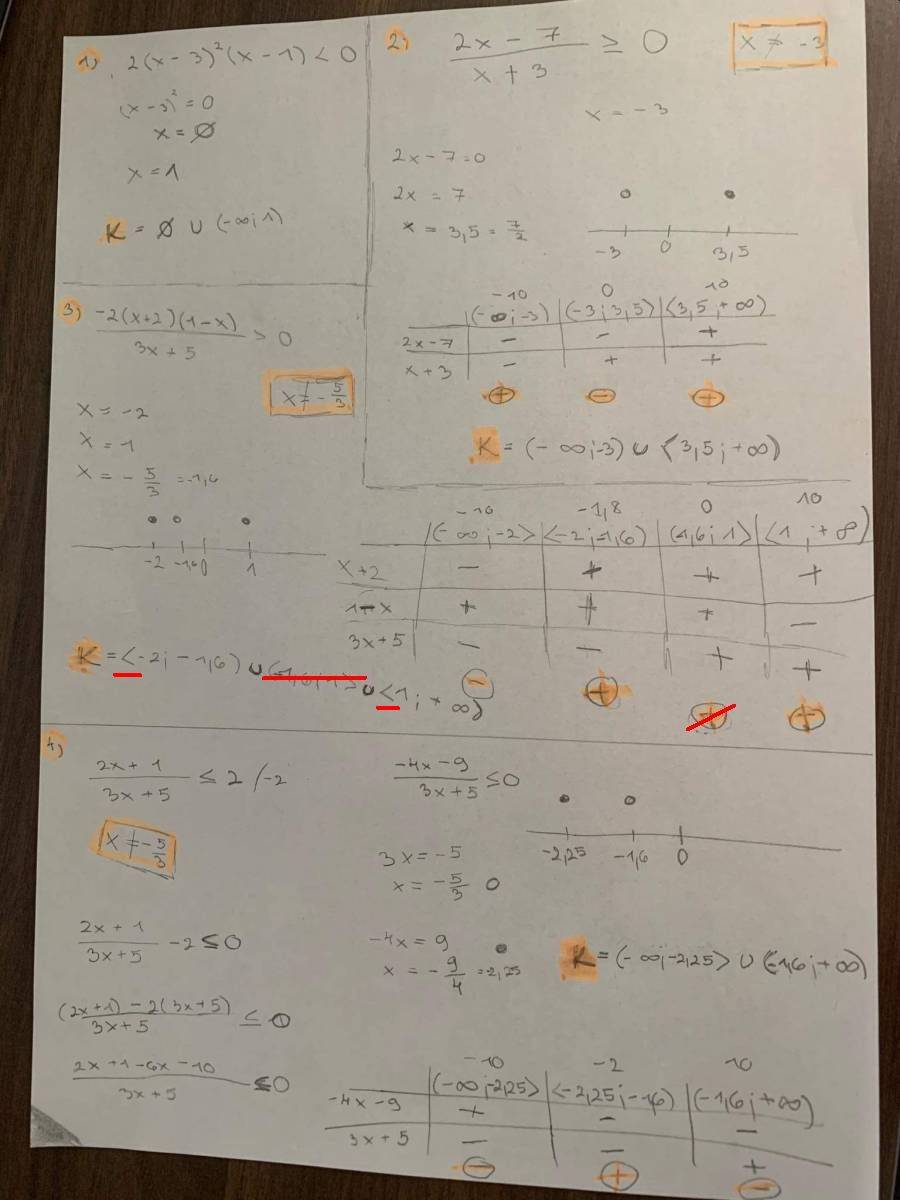 1) 2(x-3)²(x-1) < 0
(x-3)² = 0
x = ∅
x = 1
K = ∅ ∪ (-∞; 1)
2) (2x-7)/(x+3) ≥ 0
x ≠ -3
x = -3
2x-7=0
2x = 7
x = 3,5 = 7/2
-3 0 3,5
-10 0 10
(-∞;-3) (-3; 3,5) <3,5; +∞)
2x-7 - - +
x+3 - + +
+ - +
K = (-∞;-3) ∪ <3,5; +∞)
3) -2(x+2)(1-x)/(3x+5) > 0
x ≠ -5/3
x = -2
x = 1
x = -5/3 = -1,6
-2 -1,6 0 1
-10 -1,8 0 10
(-∞; -2> <-2; -1,6) (-1,6; 1> <1; +∞)
x+2 - + + +
1-x + + + -
3x+5 - - + +
K = <-2; -1,6) ∪ (-1,6; 1> ∪ <1; +∞)
4) (2x+1)/(3x+5) ≤ 2 /-2
x ≠ -5/3
(2x+1)/(3x+5) -2 ≤ 0
((2x+1) - 2(3x+5))/(3x+5) ≤ 0
(2x+1-6x-10)/(3x+5) ≤ 0
(-4x-9)/(3x+5) ≤ 0
3x = -5
x = -5/3
-4x = 9
x = -9/4 = 2,25
-2,25 -1,6 0
K = (-∞;-2,25> ∪ (-1,6; +∞)
-10 -2 10
(-∞;-2,25> <-2,25; -1,6) (-1,6; +∞)
-4x-9 + - -
3x+5 - - +
- + -